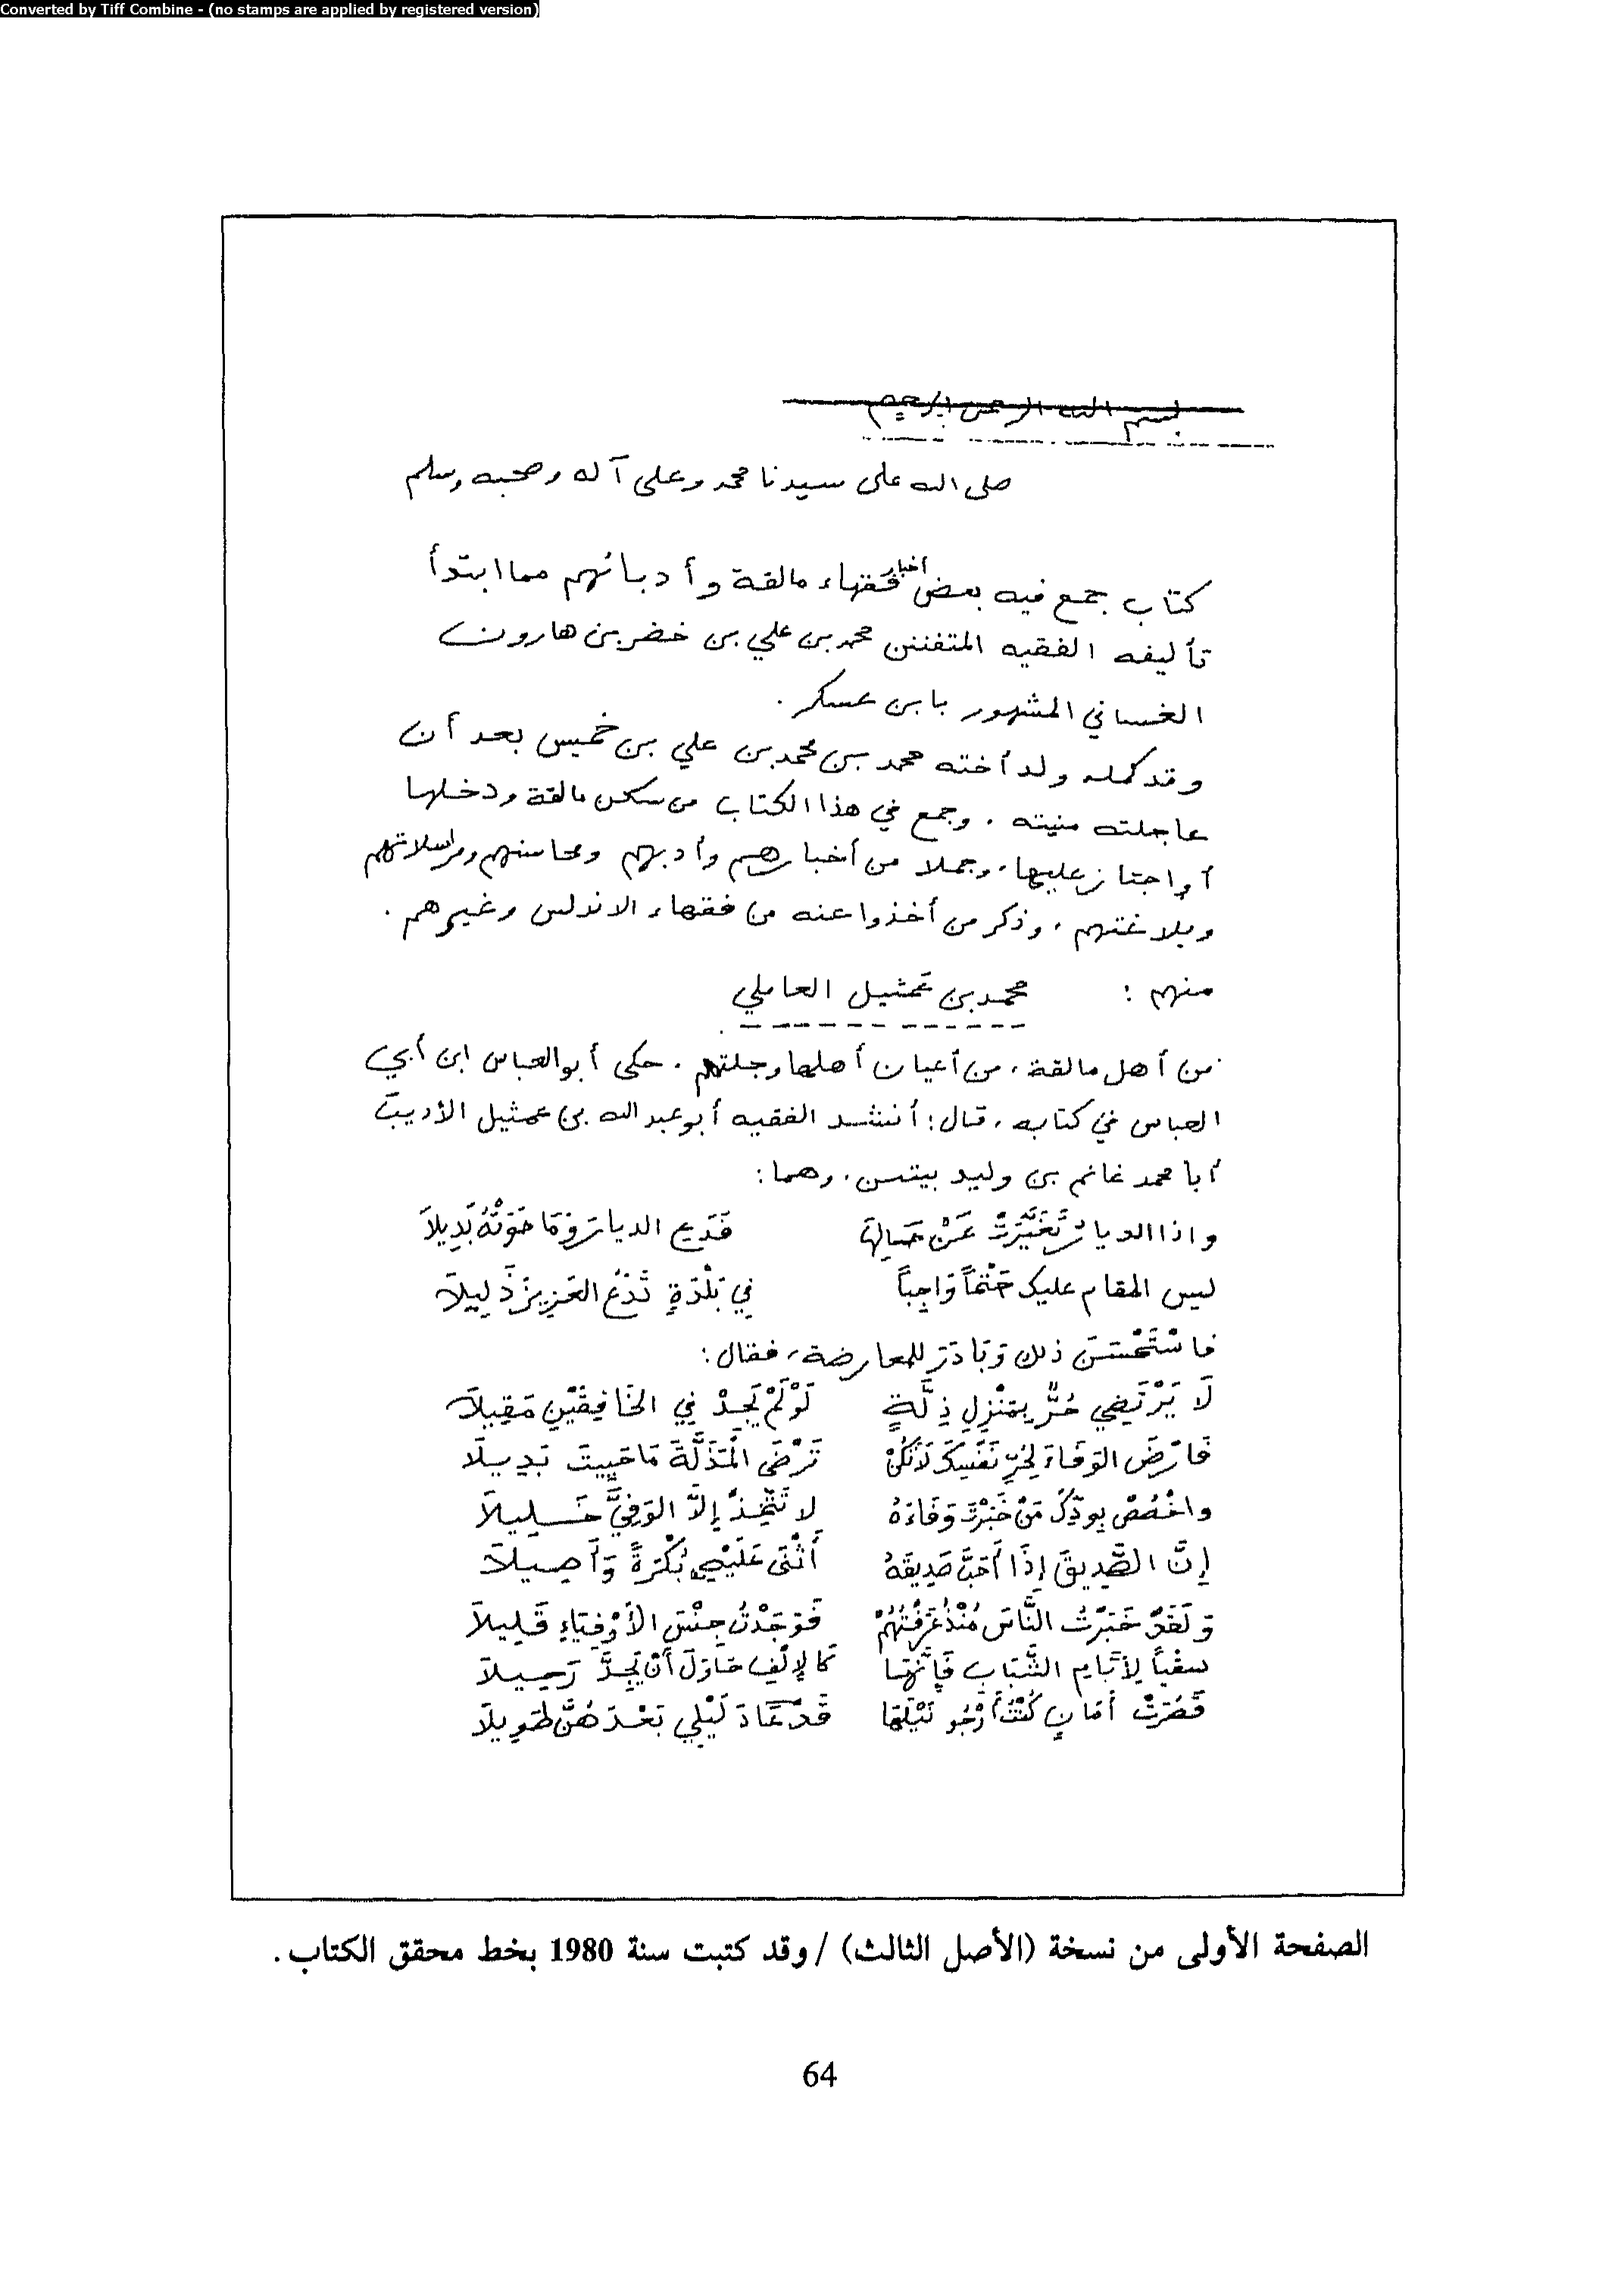 Converted by Tiff Combine - (no stamps are applied by registered version)
بسم الله الرحمن الرحيم
صلى الله على سيدنا محمد وعلى آله وصحبه وسلم
كتاب جمع فيه بعض أخبار فقهاء مالقة وأدبائهم مما ابتدأ
تأليفه الفقيه المتفنن محمد بن علي بن خضر بن هارون
الغساني المشهور بابن عسكر .
وقد كمله ولد أخته محمد بن محمد بن علي بن خميس بعد أن
عاجلته منيته . وجمع في هذا الكتاب من سكن مالقة ودخلها
أو اجتاز عليها ، وجملا من أخبارهم وأدبهم ومحاسنهم ومراسلاتهم
وبلاغتهم ، وذكر من أخذوا عنه من فقهاء الاندلس وغيرهم .
منهم : محمد بن عمثيل العاملي
من أهل مالقة ، من أعيان أهلها وجلتهم . حكى أبو العباس ابن أبي
العباس في كتابه ، قال : أنشد الفقيه أبو عبد الله بن عمثيل الأديبَ
أبا محمد غانم بن وليد بيتين ، وهما :
واذا الديارُ تَغَيَّرَتْ عَنْ حَالِهَا فَدَعِ الديارَ وَمَا حَوَتْهُ بَدِيلاَ
ليس المقام عليك حَتْماً وَاجِباً في بَلْدَةٍ تَدَعُ العَزِيزَ ذَلِيلاَ
فاسْتَحْسَنَ ذلك وَبَادَرَ للمعارضة ، فقال :
لَا يَرْتَضِي حُرٌّ بِمَنْزِلِ ذِلَّةٍ لَوْ لَمْ يَجِدْ فِي الخَافِقَيْنِ مَقِيلاَ
فَارْضَ الوَفَاءَ لِحُرِّ نَفْسِكَ لَا تَكُنْ تَرْضَى الْمَذَلَّةَ مَا حَيِيتَ بَدِيلَا
واخْصُصْ بِوُدِّكَ مَنْ خَبَرْتَ وَفَاءَهُ لا تَتَّخِذْ إِلَّا الوَفِيَّ خَلِيلاَ
إِنَّ الصَّدِيقَ إِذَا أَحَبَّ صَدِيقَهُ أَثْنَى عَلَيْهِ بُكْرَةً وَأَصِيلاَ
وَلَقَدْ خَبَرْتُ النَّاسَ مُنْذُ عَرَفْتُهُمْ فَوَجَدْتُ جِنْسَ الأَوْفِيَاءِ قَلِيلاَ
سقْياً لأَيَّامِ الشَّبَابِ فَإِنَّهَا كَالإِلْفِ حَاوَلَ أَنْ يَجِدَّ رَحِيلاَ
قَصُرَتْ أَمَانٍ كُنْتُ أَرْجُو نَيْلَهَا قَدْ عَادَ لَيْلِي بَعْدَهُنَّ طَوِيلاَ
الصفحة الأولى من نسخة (الأصل الثالث) / وقد كتبت سنة 1980 بخط محقق الكتاب .
64